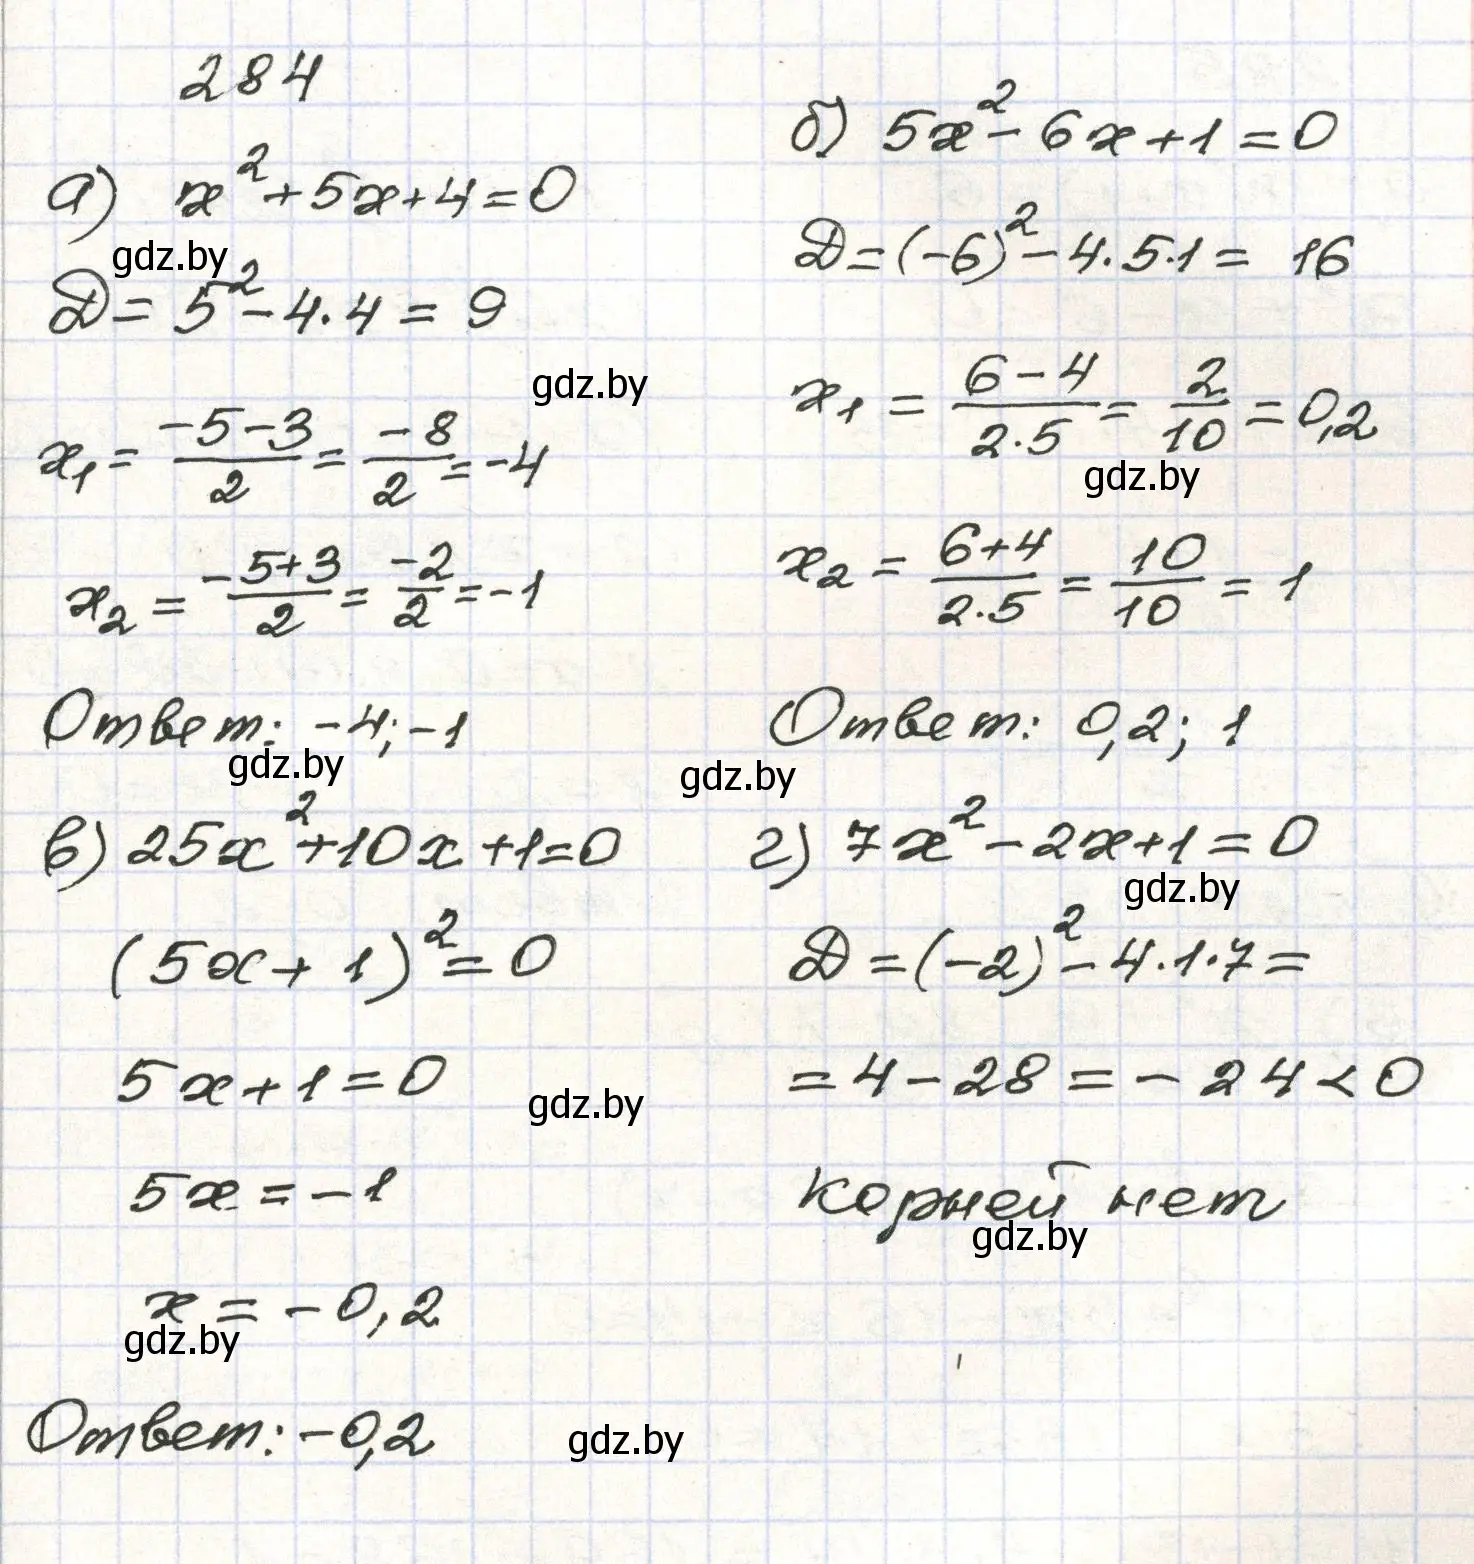 284
а) x²+5x+4=0
gdz.by
D= 5²-4·4= 9
gdz.by
x₁= (-5-3)/2 = -8/2 = -4
x₂= (-5+3)/2 = -2/2 = -1
Ответ: -4; -1
gdz.by
б) 5x²-6x+1=0
D=(-6)²-4·5·1= 16
x₁ = (6-4)/(2·5) = 2/10 = 0,2
gdz.by
x₂ = (6+4)/(2·5) = 10/10 = 1
Ответ: 0,2; 1
gdz.by
в) 25x²+10x+1=0
(5x+1)²=0
5x+1=0
gdz.by
5x=-1
x=-0,2
gdz.by
Ответ: -0,2
gdz.by
г) 7x²-2x+1=0
gdz.by
D=(-2)²-4·1·7=
=4-28=-24<0
корней нет
gdz.by